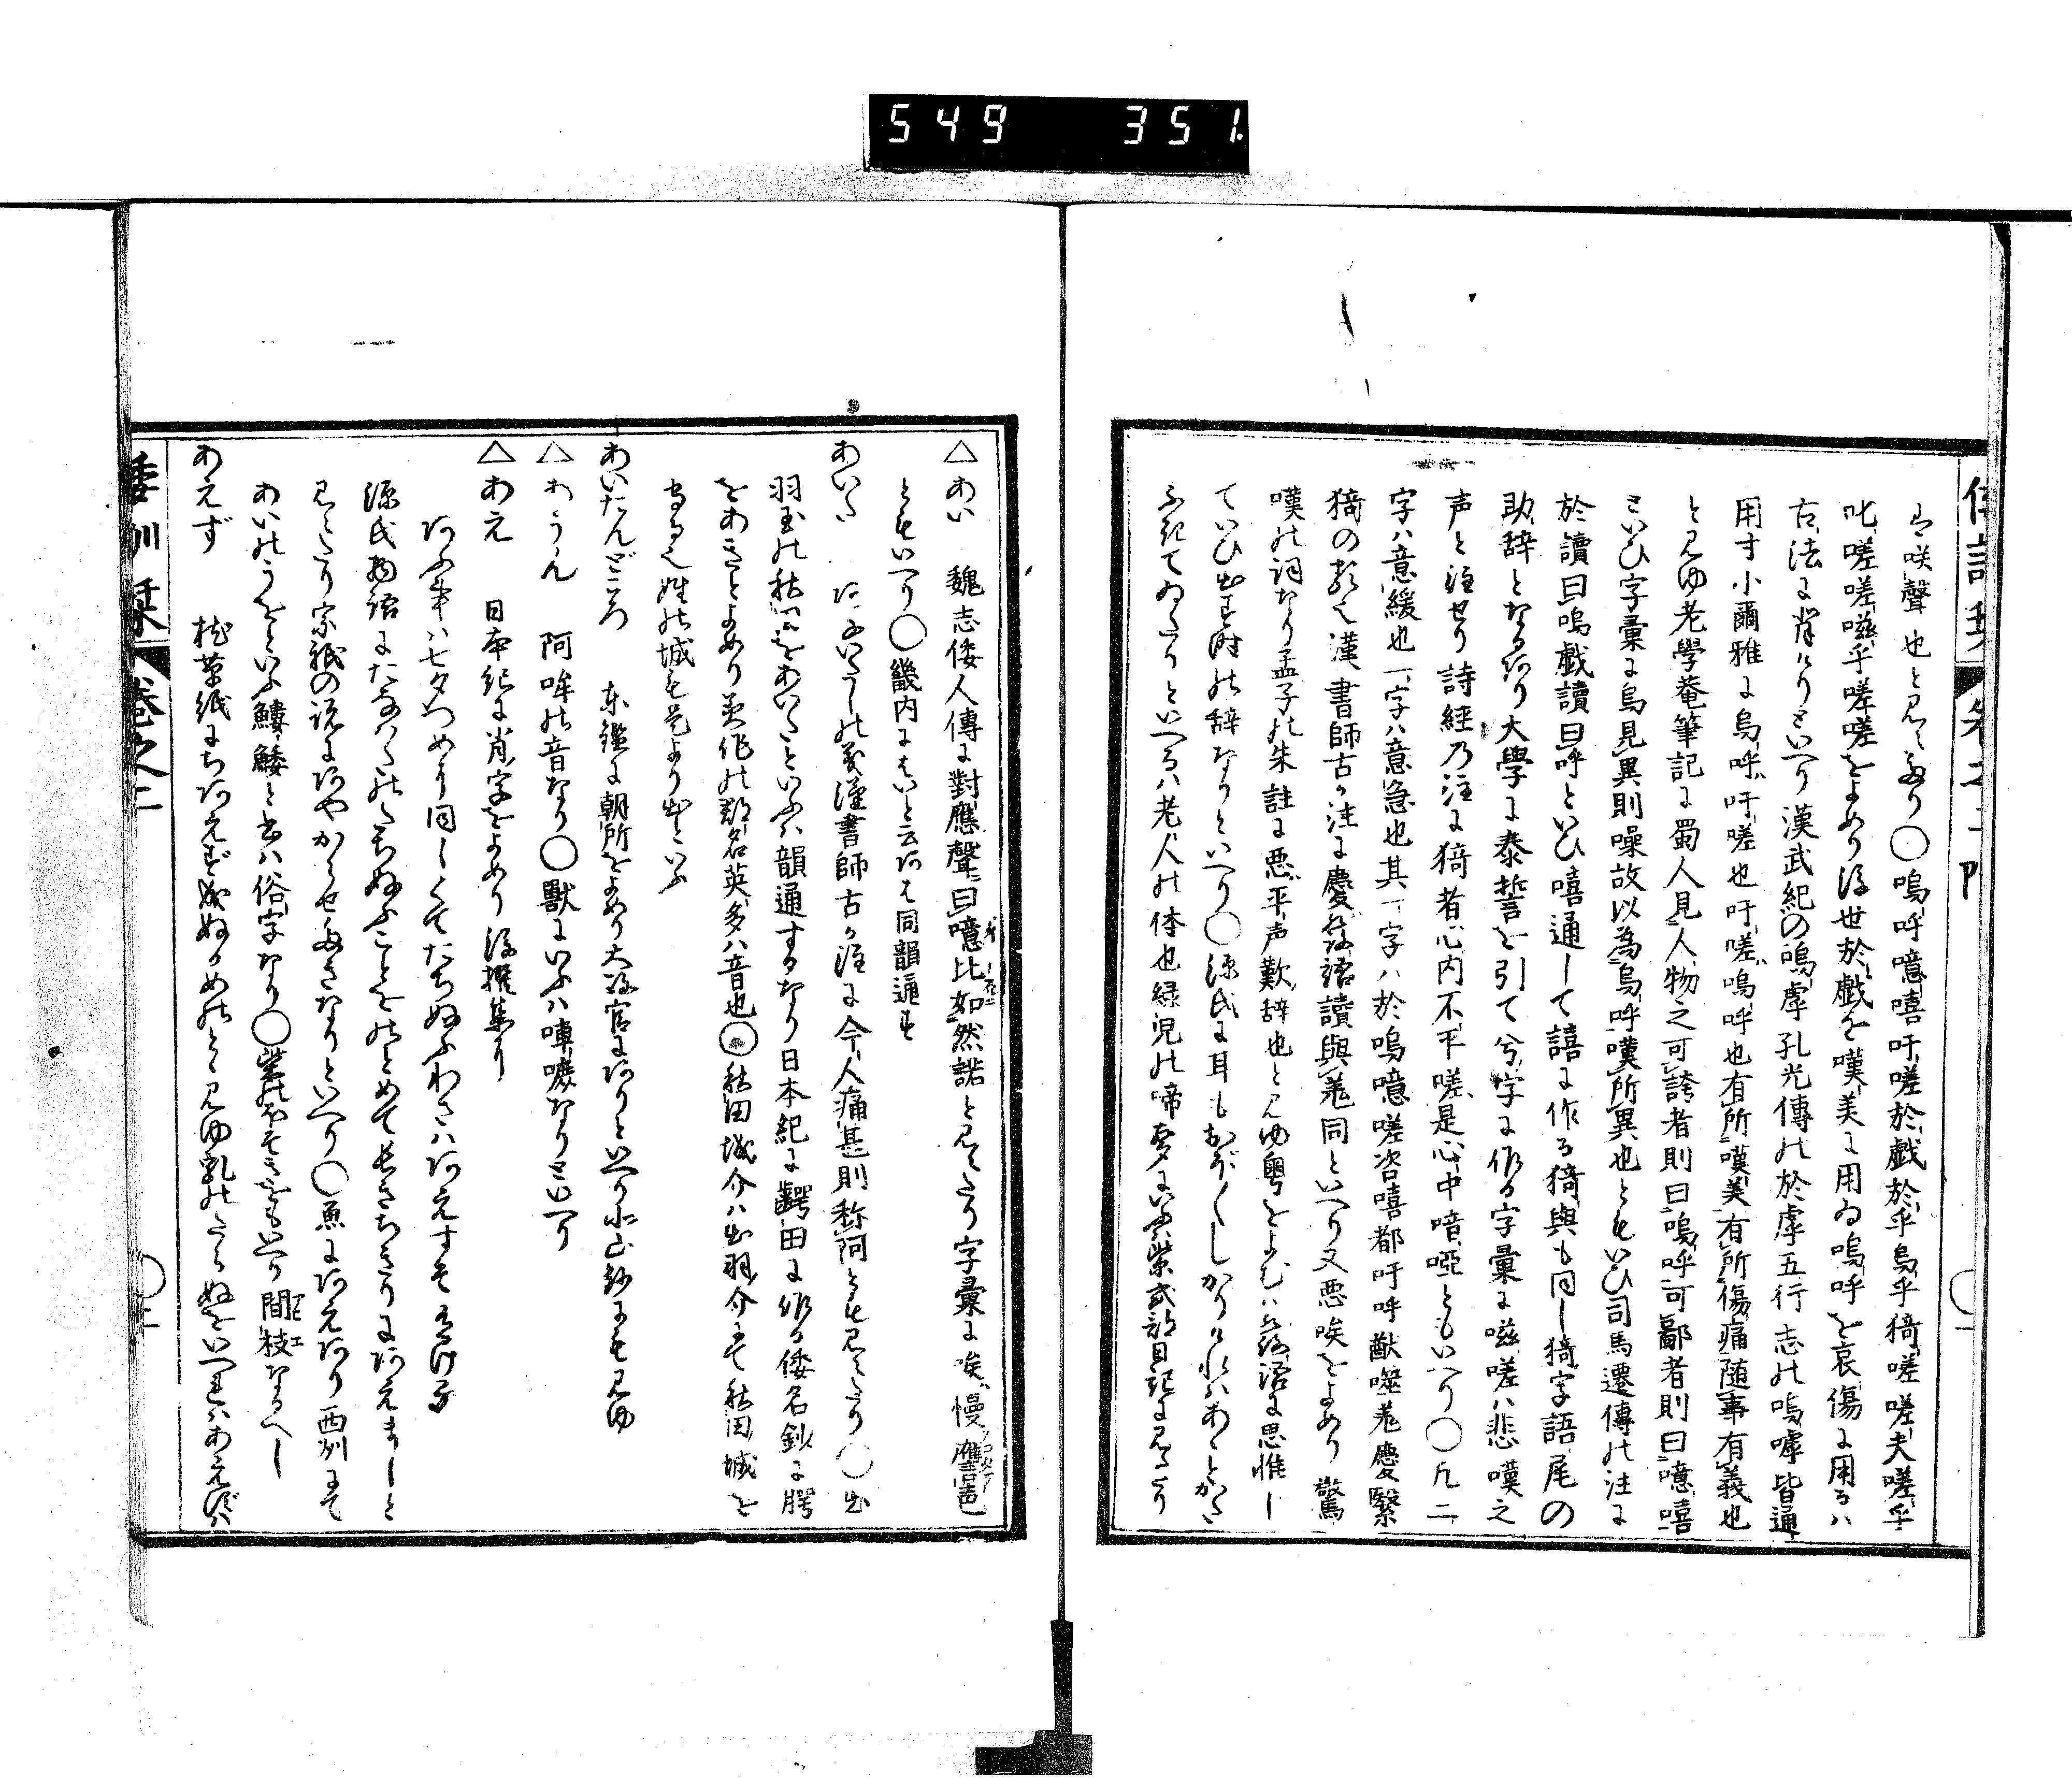 549 351.
は咲聲也と見えたり〇嗚呼噫嘻吁嗟於戯於乎烏乎猗嗟嗟夫嗟乎
叱嗟嗟嗞乎嗟嗟をよめり後世於戯を嘆美に用ゐ嗚呼を哀傷に用るハ
古法に背けりといへり漢武紀の嗚虖孔光傳の於虖五行志の嗚嘑皆通
用す小爾雅に烏呼吁嗟也吁嗟嗚呼也有所嘆美有所傷痛随事有義也
と見ゆ老學菴筆記に蜀人見人物之可誇者則曰嗚呼可鄙者則曰噫嘻
といひ字彙に烏見異則噪故以為烏呼嘆所異也ともいひ司馬遷傳の注に
於讀曰嗚戯讀曰呼といひ嘻通して譆に作る猗與も同し猗字語尾の
助辞となるあり大學に泰誓を引て兮字に作る字彙に嗞嗟ハ悲嘆之
声と注せり詩經乃注に猗者心内不平嗟是心中喑啞ともいへり〇凡二
字ハ意緩也一字ハ意急也其一字ハ於嗚噫嗟咨嘻都吁呼猷噬羌慶繄
猗の類也漢書師古か注に慶發語讀與羌同といへり又悪唉をよめり驚
嘆の詞なり孟子の朱註に悪平声歎辞也と見ゆ粤をよむハ發語に思惟し
ていひ出す時の辞なりといへり〇源氏に耳もおぼ〱しかりけれハあゝとかた
ふきてゐたりといへるハ老人の体也緑児の啼声にいふハ紫式部日記に見えたり
△あい 魏志倭人傳に對應聲曰噫比如然諾と見えたり字彙に唉慢應声
ともいへり〇畿内にはいと云あは同韻通す
あいた あないたしの義漢書師古か注に今人痛甚則称阿とも見えたり〇出
羽国の秋田をあいたといふハ韻通するなり日本紀に齶田に作る倭名鈔に腭
をあきとよめり美作の郡名英多ハ音也〇秋田城介ハ出羽介にて秋田城を
守る也姓の城も是より出といふ
あいたんどころ 東鑑に朝所をよめり大政官にありといへり北山鈔にも見ゆ
△あうん 阿吽の音なり〇獸にいふハ啈㘅なりといへり
△あえ 日本紀に肖字をよめり後撰集に
あふ事ハ七夕つめに同しくてたちぬふわさハあえすそ有ける
源氏物語にたなハたのたちぬふことをのとめて長きちきりにあえましと
見えたり宗祇の説にあやからせたきなりといへり〇魚にあえあり西州にて
あいのうをといふ鱫鯘と書ハ俗字なり〇柴のほそきをもいへり間枝なるへし
あえず 枕草紙にちあえずなりぬるめのとゝ見ゆ乳のたらぬをいへれハあえずハ
倭訓栞 巻之二